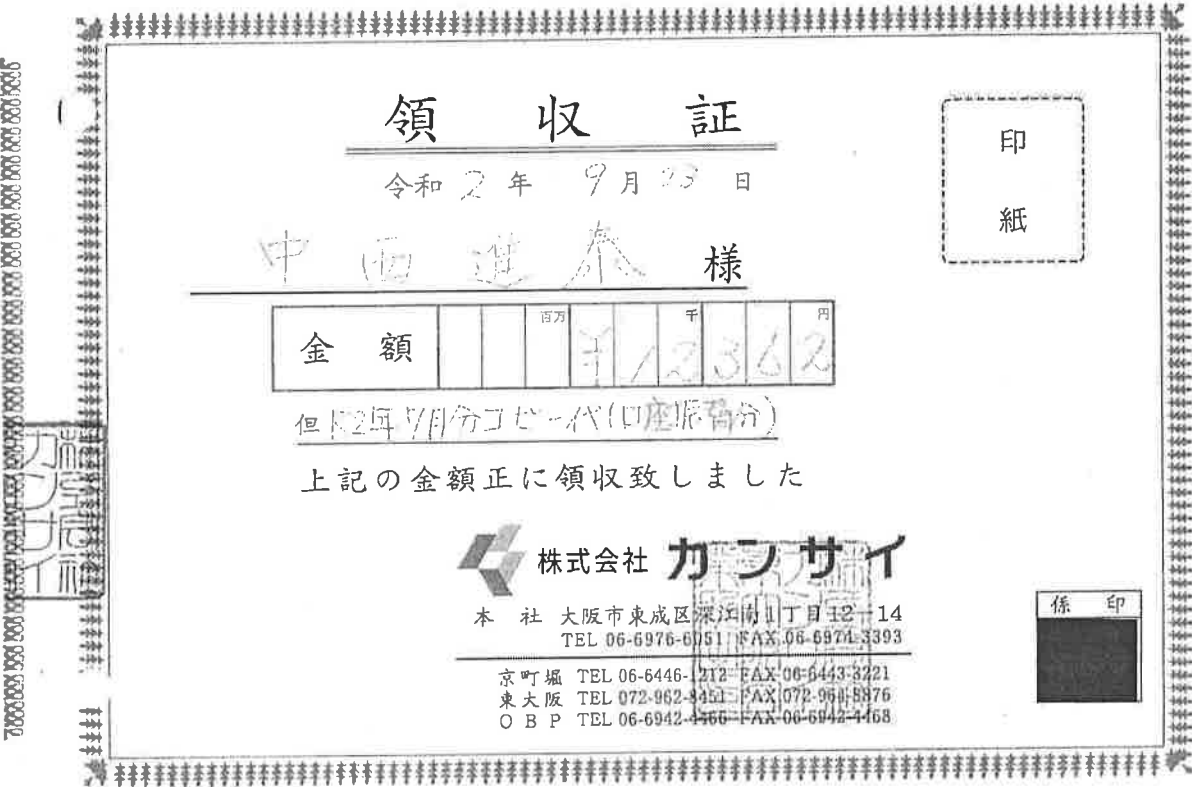 領収証
令和 2 年 9 月 23 日
中西進泰 様
印紙
金額 百万 千 円
¥12362
但 R2年7月分コピー代(口座振替分)
上記の金額正に領収致しました
株式会社 カンサイ
本社 大阪市東成区深江南1丁目12-14
TEL 06-6976-6051 FAX 06-6974-3393
京町堀 TEL 06-6446-1212 FAX 06-6443-3221
東大阪 TEL 072-962-8451 FAX 072-964-8876
OBP TEL 06-6942-4466 FAX 06-6942-4468
係印